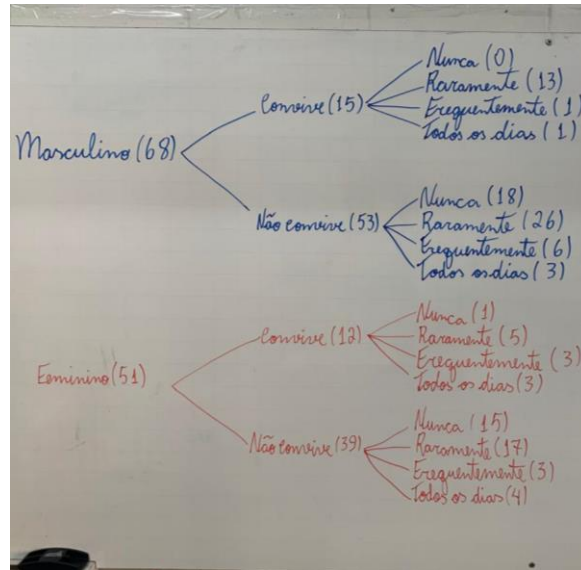 Masculino (68)
Convive (15)
Nunca (0)
Raramente (13)
Frequentemente (1)
Todos os dias (1)
Não convive (53)
Nunca (18)
Raramente (26)
Frequentemente (6)
Todos os dias (3)
Feminino (51)
Convive (12)
Nunca (1)
Raramente (5)
Frequentemente (3)
Todos os dias (3)
Não convive (39)
Nunca (15)
Raramente (17)
Frequentemente (3)
Todos os dias (4)